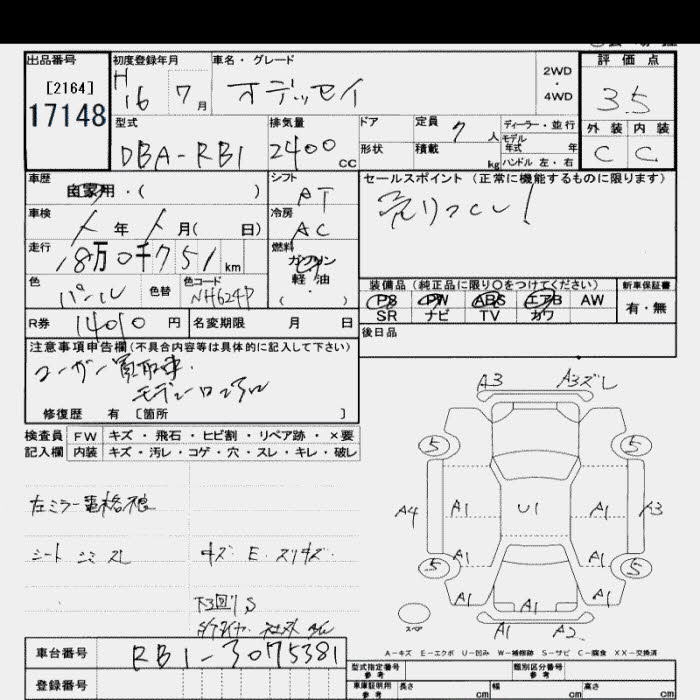 出品番号
[2164]
17148
初度登録年月
H 16 7月
車名・グレード
オデッセイ
2WD
・
4WD
評価点
3.5
外装 内装
C C
型式
DBA-RB1
排気量
2400 CC
ドア
定員 7人
ディーラー・並行
モデル
年式 年
形状
積載 kg
ハンドル 左・右
車歴
自家用・( )
シフト
AT
セールスポイント (正常に機能するものに限ります)
売りつくし!
車検
年 月( 日)
冷房
AC
走行
18万0千751 km
燃料
ガソリン
軽・油
( )
色
パール
色替
色コード
NH624P
装備品(純正品に限り○をつけてください)
新車保証書
PS PW ABS エアB AW
有・無
SR ナビ TV カワ
R券 14010 円
名変期限 月 日
後日品
注意事項申告欄(不具合内容等は具体的に記入して下さい)
ユーザー買取車.
修復歴 有 [箇所 ]
検査員 FW キズ・飛石・ヒビ割・リペア跡・×要
記入欄 内装 キズ・汚レ・コゲ・穴・スレ・キレ・破レ
左ミラー電格不良
シート シミ スレ
キズ E. スリキズ.
下回りS
A3 A3ズレ
5 5
A4 A1 U1 A1 A3
A1 A1
5 5
A1 A1 A1
A1 A2
スペア
A-キズ E-エクボ U-凹み W-補修跡 S-サビ C-腐食 XX-交換済
車台番号
RB1-3075381
登録番号
型式指定番号
参考
類別区分番号
参考
車庫証明用
参考
長さ cm
幅 cm
高さ cm